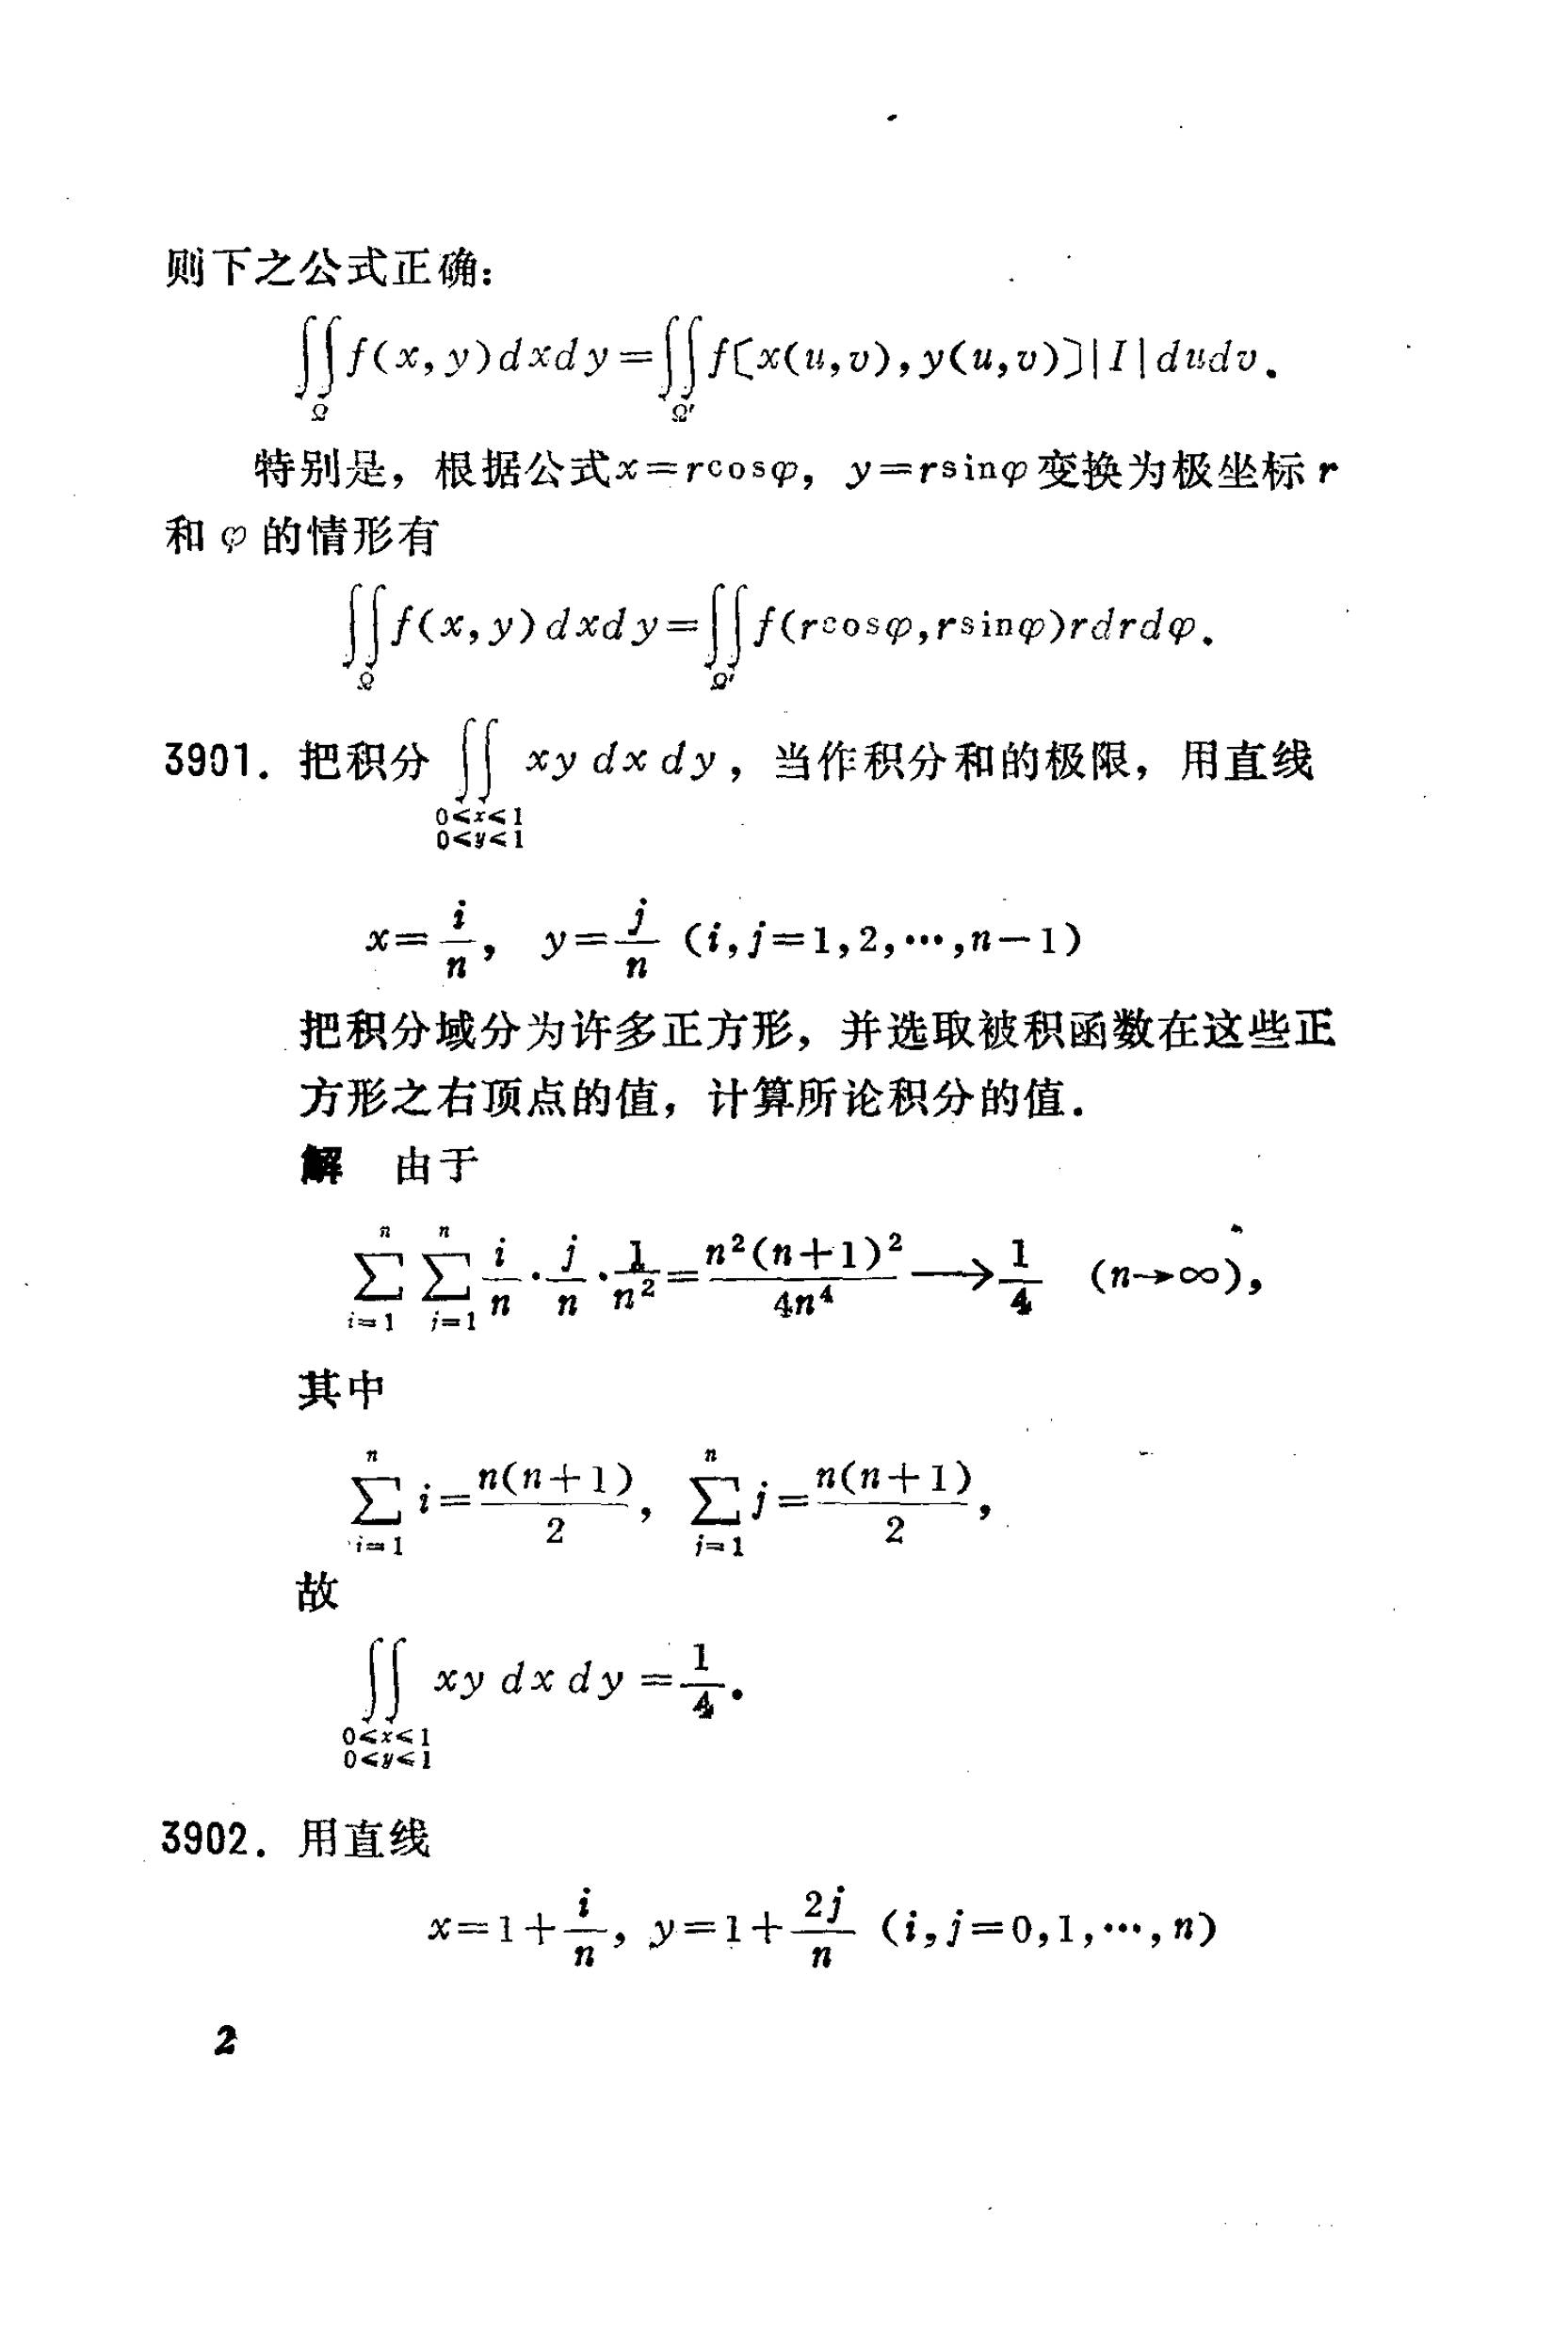 则下之公式正确:
∬_Ω f(x,y)dxdy=∬_Ω′ f〔x(u,v),y(u,v)〕|I|dudv.
特别是，根据公式x=rcosφ，y=rsinφ变换为极坐标r
和φ的情形有
∬_Ω f(x,y)dxdy=∬_Ω′ f(rcosφ,rsinφ)rdrdφ.
3901. 把积分 ∬ xy dx dy，当作积分和的极限，用直线
0≤x≤1
0≤y≤1
x=i/n, y=j/n (i,j=1,2,…,n-1)
把积分域分为许多正方形，并选取被积函数在这些正
方形之右顶点的值，计算所论积分的值.
解 由于
∑_{i=1}^{n} ∑_{j=1}^{n} i/n·j/n·1/n²=n²(n+1)²/4n⁴⟶1/4 (n→∞),
其中
∑_{i=1}^{n} i=n(n+1)/2, ∑_{j=1}^{n} j=n(n+1)/2,
故
∬ xy dx dy=1/4.
0≤x≤1
0≤y≤1
3902. 用直线
x=1+i/n, y=1+2j/n (i,j=0,1,…,n)
2